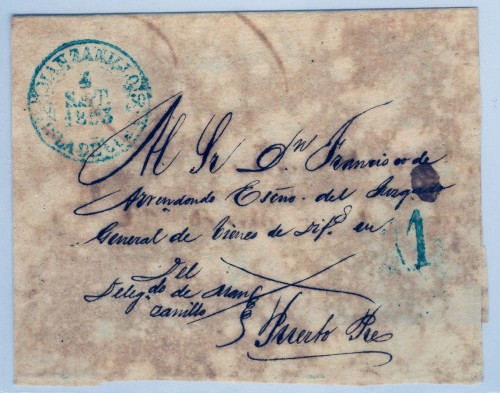 MANZANILLO
4
SET.
1853
ISLA DE CUBA
Al Sr. Dn. Francisco de
Arredondo Esño. del Juzgado
General de Bienes de Dif.s en
1
Del
Deleg.do de Man
zanillo
Puerto Pe